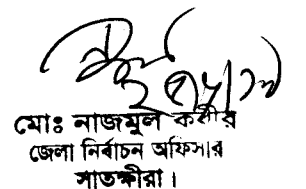 মোঃ নাজমুল কবীর
জেলা নির্বাচন অফিসার
সাতক্ষীরা।